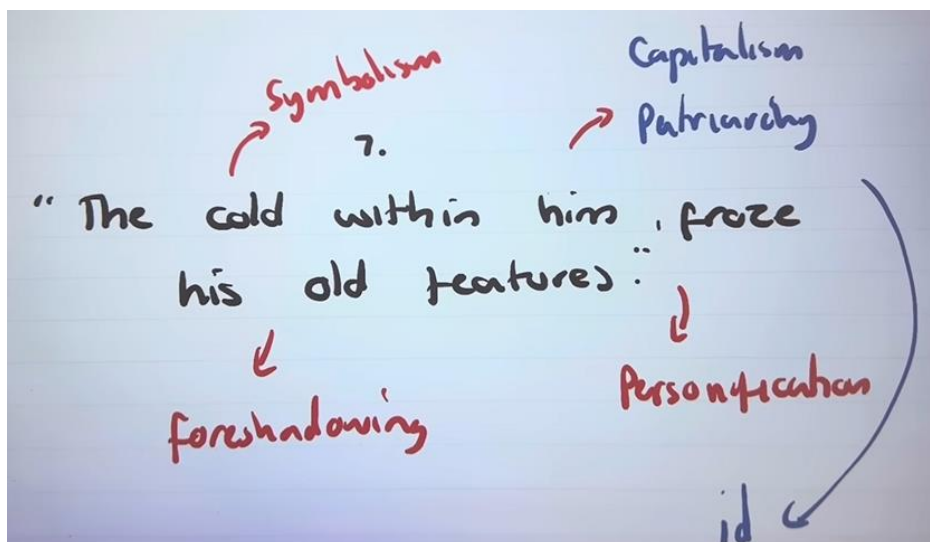 Symbolism
Capitalism
Patriarchy
7.
"The cold within him, froze
his old features."
Foreshadowing
Personification
id